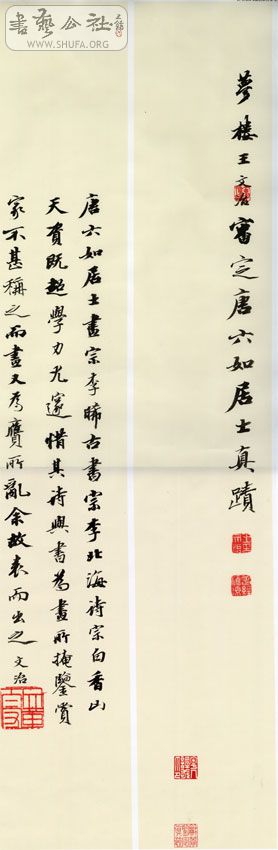 夢樓王文治審定唐六如居士真蹟
唐六如居士畫宗李晞古書宗李北海詩宗白香山
天資既超學力尤邃惜其詩與書為畫所掩鑒賞
家不甚稱之而畫又為贋所亂余故表而出之 文治
書藝公社
WWW.SHUFA.ORG